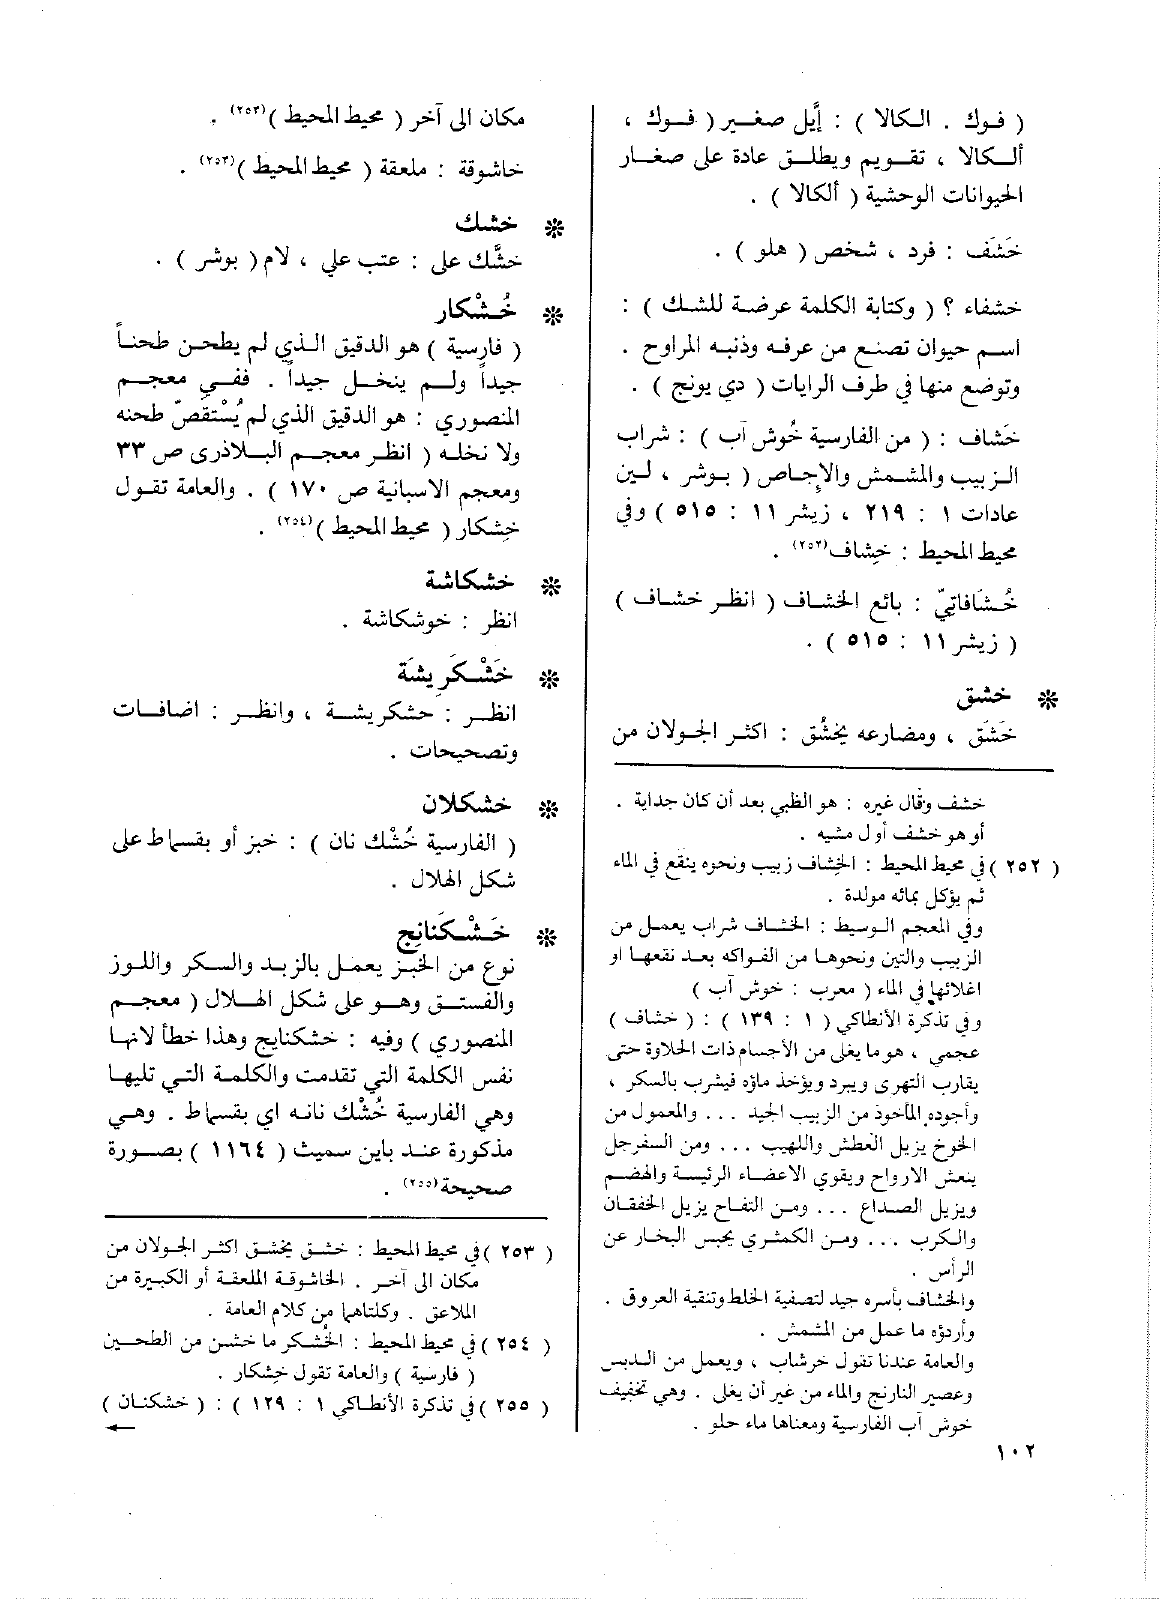 ( فوك . الكالا ) : إيَّل صغير ( فوك ،
ألكالا ، تقويم ويطلق عادة على صغار
الحيوانات الوحشية ( ألكالا ) .
خَشَف : فرد ، شخص ( هلو ) .
خشفاء ؟ ( وكتابة الكلمة عرضة للشك ) :
اسم حيوان تصنع من عرفه وذنبه المراوح .
وتوضع منها في طرف الرايات ( دي يونج ) .
خَشاف : ( من الفارسية خُوش آب ) : شراب
الزبيب والمشمش والإجاص ( بوشر ، لين
عادات ١ : ٢١٩ ، زيشر ١١ : ٥١٥ ) وفي
محيط المحيط : خِشاف(٢٥٢) .
خُشَافاتِيّ : بائع الخشاف ( انظر خشاف )
( زيشر ١١ : ٥١٥ ) .
* خشق
خَشَق ، ومضارعه يخشُق : اكثر الجولان من
خشف وقال غيره : هو الظبي بعد أن كان جداية .
أو هو خشف أول مشيه .
( ٢٥٢ ) في محيط المحيط : الخِشاف زبيب ونحوه ينقع في الماء
ثم يؤكل بمائه مولدة .
وفي المعجم الوسيط : الخشاف شراب يعمل من
الزبيب والتين ونحوها من الفواكه بعد نقعها او
اغلائها في الماء ( معرب : خوش آب )
وفي تذكرة الأنطاكي ( ١ : ١٣٩ ) : ( خشاف )
عجمي ، هو ما يغلى من الأجسام ذات الحلاوة حتى
يقارب التهري ويبرد ويؤخذ ماؤه فيشرب بالسكر ،
وأجوده المأخوذ من الزبيب الجيد ... والمعمول من
الخوخ يزيل العطش واللهيب ... ومن السفرجل
ينعش الارواح ويقوي الاعضاء الرئيسة والهضم
ويزيل الصداع ... ومن التفاح يزيل الخفقان
والكرب ... ومن الكمثرى يحبس البخار عن
الرأس .
والخشاف بأسره جيد لتصفية الخلط وتنقية العروق .
وأردؤه ما عمل من المشمش .
والعامة عندنا تقول خرشاب ، ويعمل من الدبس
وعصير النارنج والماء من غير أن يغلى . وهي تخفيف
خوش آب الفارسية ومعناها ماء حلو .
١٠٢
مكان الى آخر ( محيط المحيط )(٢٥٣) .
خاشوقة : ملعقة ( محيط المحيط )(٢٥٣) .
* خشك
خشَّك على : عتب علي ، لام ( بوشر ) .
* خُشْكار
( فارسية ) هو الدقيق الذي لم يطحن طحناً
جيداً ولم ينخل جيداً . ففي معجم
المنصوري : هو الدقيق الذي لم يُسْتقصّ طحنه
ولا نخله ( انظر معجم البلاذرى ص ٣٣
ومعجم الاسبانية ص ١٧٠ ) . والعامة تقول
خِشكار ( محيط المحيط )(٢٥٤) .
* خشكاشة
انظر : خوشكاشة .
* خَشْكَريشَة
انظر : حشكريشة ، وانظر : اضافات
وتصحيحات .
* خشكلان
( الفارسية خُشْك نان ) : خبز أو بقسماط على
شكل الهلال .
* خَشْكَنانِج
نوع من الخبز يعمل بالزبد والسكر واللوز
والفستق وهو على شكل الهلال ( معجم
المنصوري ) وفيه : خشكنايج وهذا خطأ لانها
نفس الكلمة التي تقدمت والكلمة التي تليها
وهي الفارسية خُشْك نانه اي بقسماط . وهي
مذكورة عند باين سميث ( ١١٦٤ ) بصورة
صحيحة(٢٥٥) .
( ٢٥٣ ) في محيط المحيط : خشق يخشق اكثر الجولان من
مكان الى آخر . الخاشوقة الملعقة أو الكبيرة من
الملاعق . وكلتاهما من كلام العامة .
( ٢٥٤ ) في محيط المحيط : الخُشكر ما خشن من الطحين
( فارسية ) والعامة تقول خِشكار .
( ٢٥٥ ) في تذكرة الأنطاكي ١ : ١٢٩ ) : ( خشكنان )